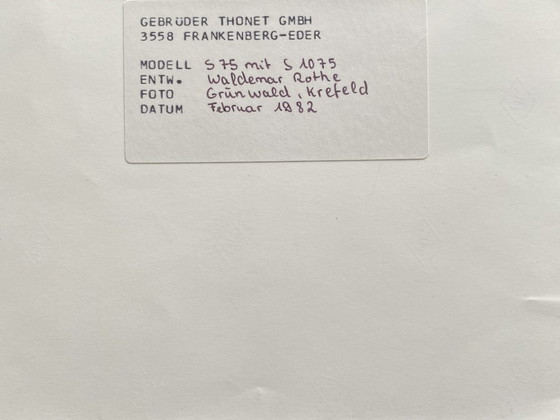 GEBRÜDER THONET GMBH
3558 FRANKENBERG-EDER
MODELL S 75 mit S 1075
ENTW. Waldemar Rothe
FOTO Grünwald, Krefeld
DATUM Februar 1982